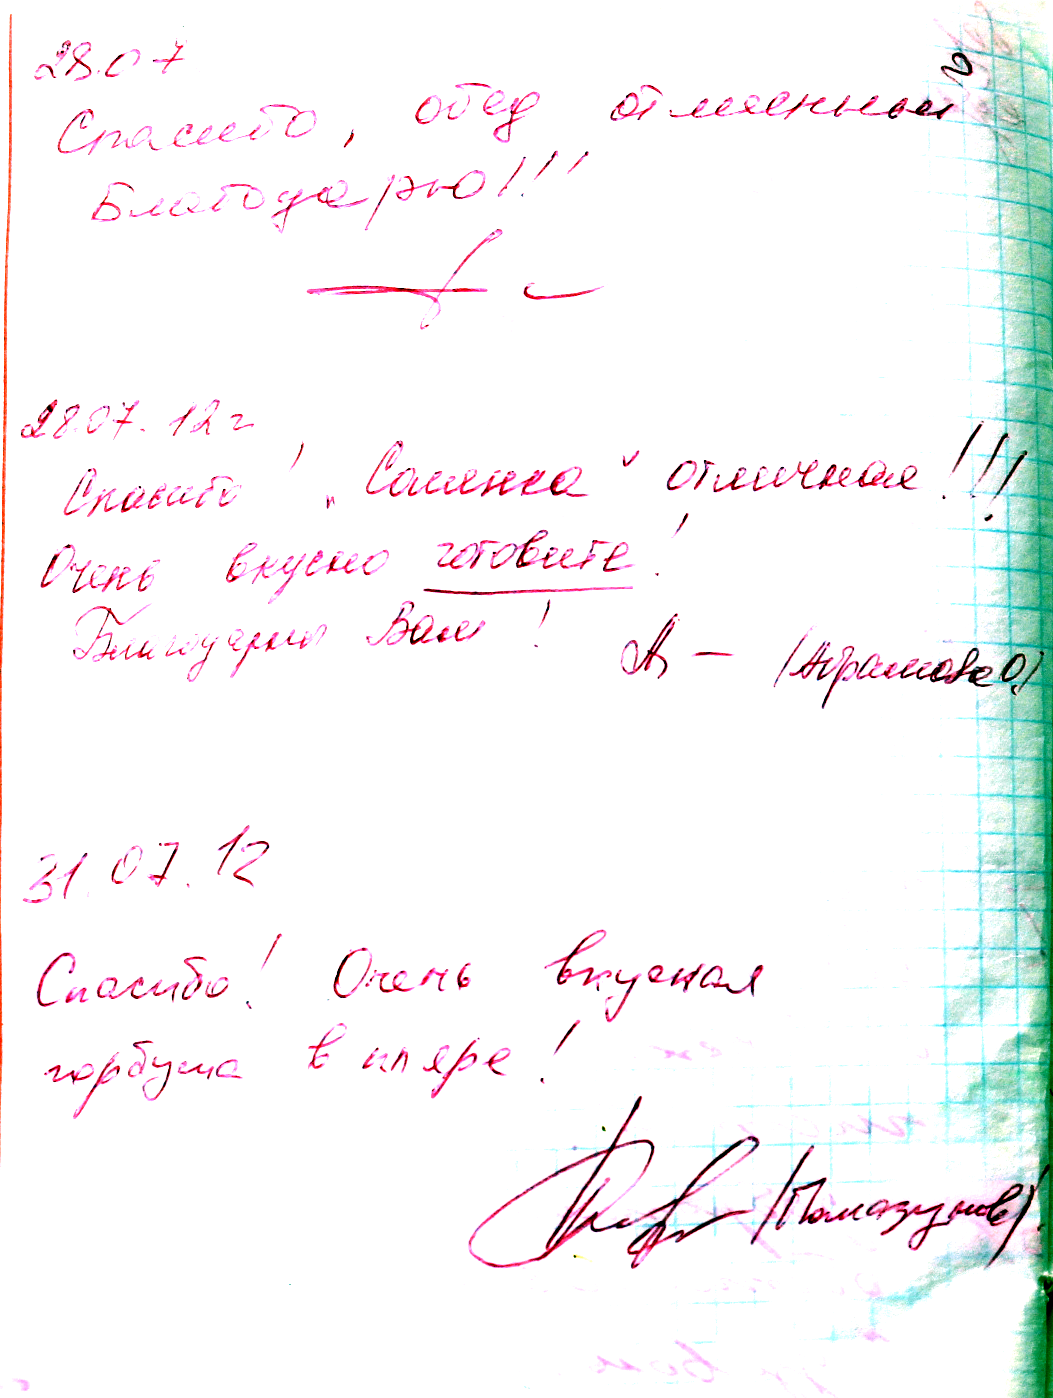 28.07
Спасибо, обед отменный
Благодарю!!!
28.07.12 г
Спасибо! „Солянка“ отличная!!!
Очень вкусно готовите!
Благодарны Вам! (Абрамова О.)
31.07.12
Спасибо! Очень вкусная
горбуша в кляре!
(Помазунов).